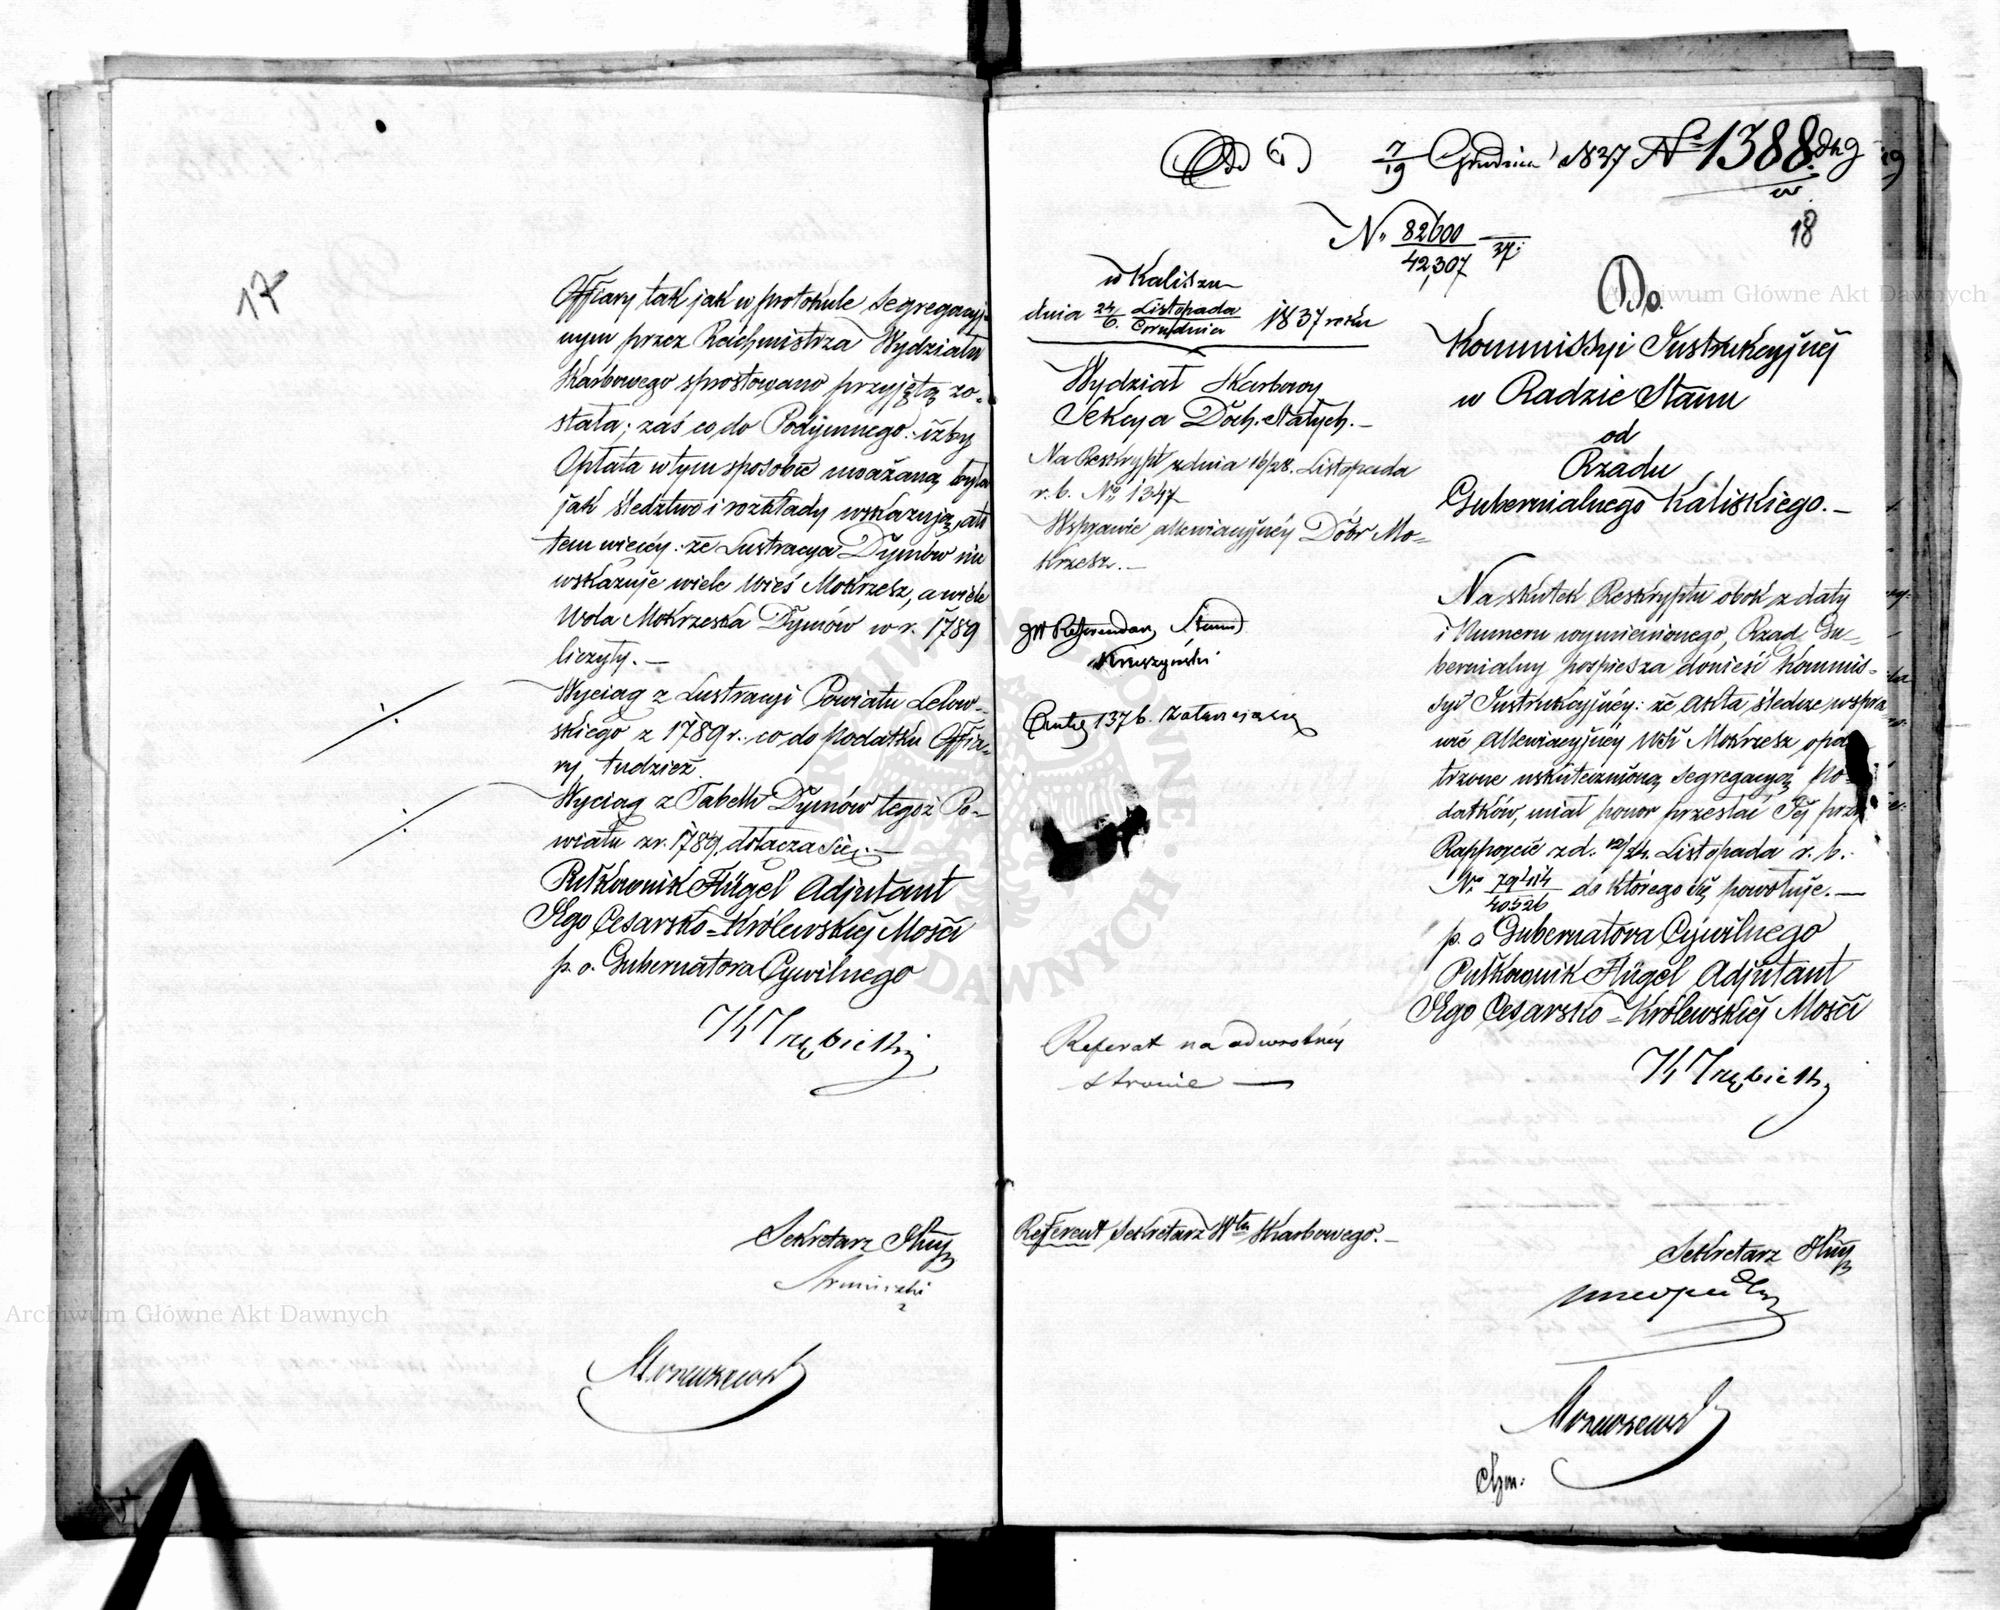 17
Offiary tak jak w protokule segregacyj-
nym przez Rachmistrza Wydziału
Skarbowego sprostowano przyjętą zo-
stała; zaś co do Podymnego: iżby
Opłata w tym sposobie uważaną była
jak śledztwo i rozkłady wskazują, a to
tem więcey: że Lustracya Dymów nie
wskazuje wiele Wieś Mokrzesz, a wiele
Wola Mokrzeska Dymów w r. 1789
liczyły. —
Wyciąg z Lustracyi Powiatu Lelow-
skiego z 1789 r. co do podatku Offia-
ry, tudzież
Wyciąg z Tabelli Dymów tegoż Po-
wiatu z r. 1789, dołącza się. —
Pułkownik Flügel Adjutant
Jego Cesarsko-Królewskiéj Mości
p. o. Gubernatora Cywilnego
Sekretarz Jlny
7/19 Grudnia 1837 № 1388
18
N. 82600/42,307 /37.
w Kaliszu
dnia 24/6. Listopada/Grudnia 1837 roku
Wydział Skarbowy
Sekcya Doch. Stałych. —
Na Reskrypt z dnia 16/28. Listopada
r. b. № 1347
W sprawie allewiacyjnéy Dóbr Mo-
krzesz. —
JW Referendarz Stanu
Kruszyński
Referat na odwrotnéy
stronie —
Referent Sekretarz Włu Skarbowego. —
Do
Kommissyi Instrukcyjnéj
w Radzie Stanu
od
Rządu
Gubernialnego Kaliskiego. —
Na skutek Reskryptu obok z daty
i Numeru wymienionego, Rząd Gu-
bernialny pospiesza donieść Kommis-
syi Instrukcyjnéy: że Akta śledcze w spra-
wie Allewiacyjnéy Wsi Mokrzesz opa-
trzone uskutecznioną segregacyą Po-
datków, miał honor przesłać Jéj przy
Rapporcie z d. 12/24. Listopada r. b.
N. 79414/40526 do którego się powołuje. —
p. o Gubernatora Cywilnego
Pułkownik Flügel Adjutant
Jego Cesarsko-Królewskiéj Mości
Sekretarz Jlny
Archiwum Główne Akt Dawnych
Archiwum Główne Akt Dawnych
ARCHIWUM GŁÓWNE AKT DAWNYCH